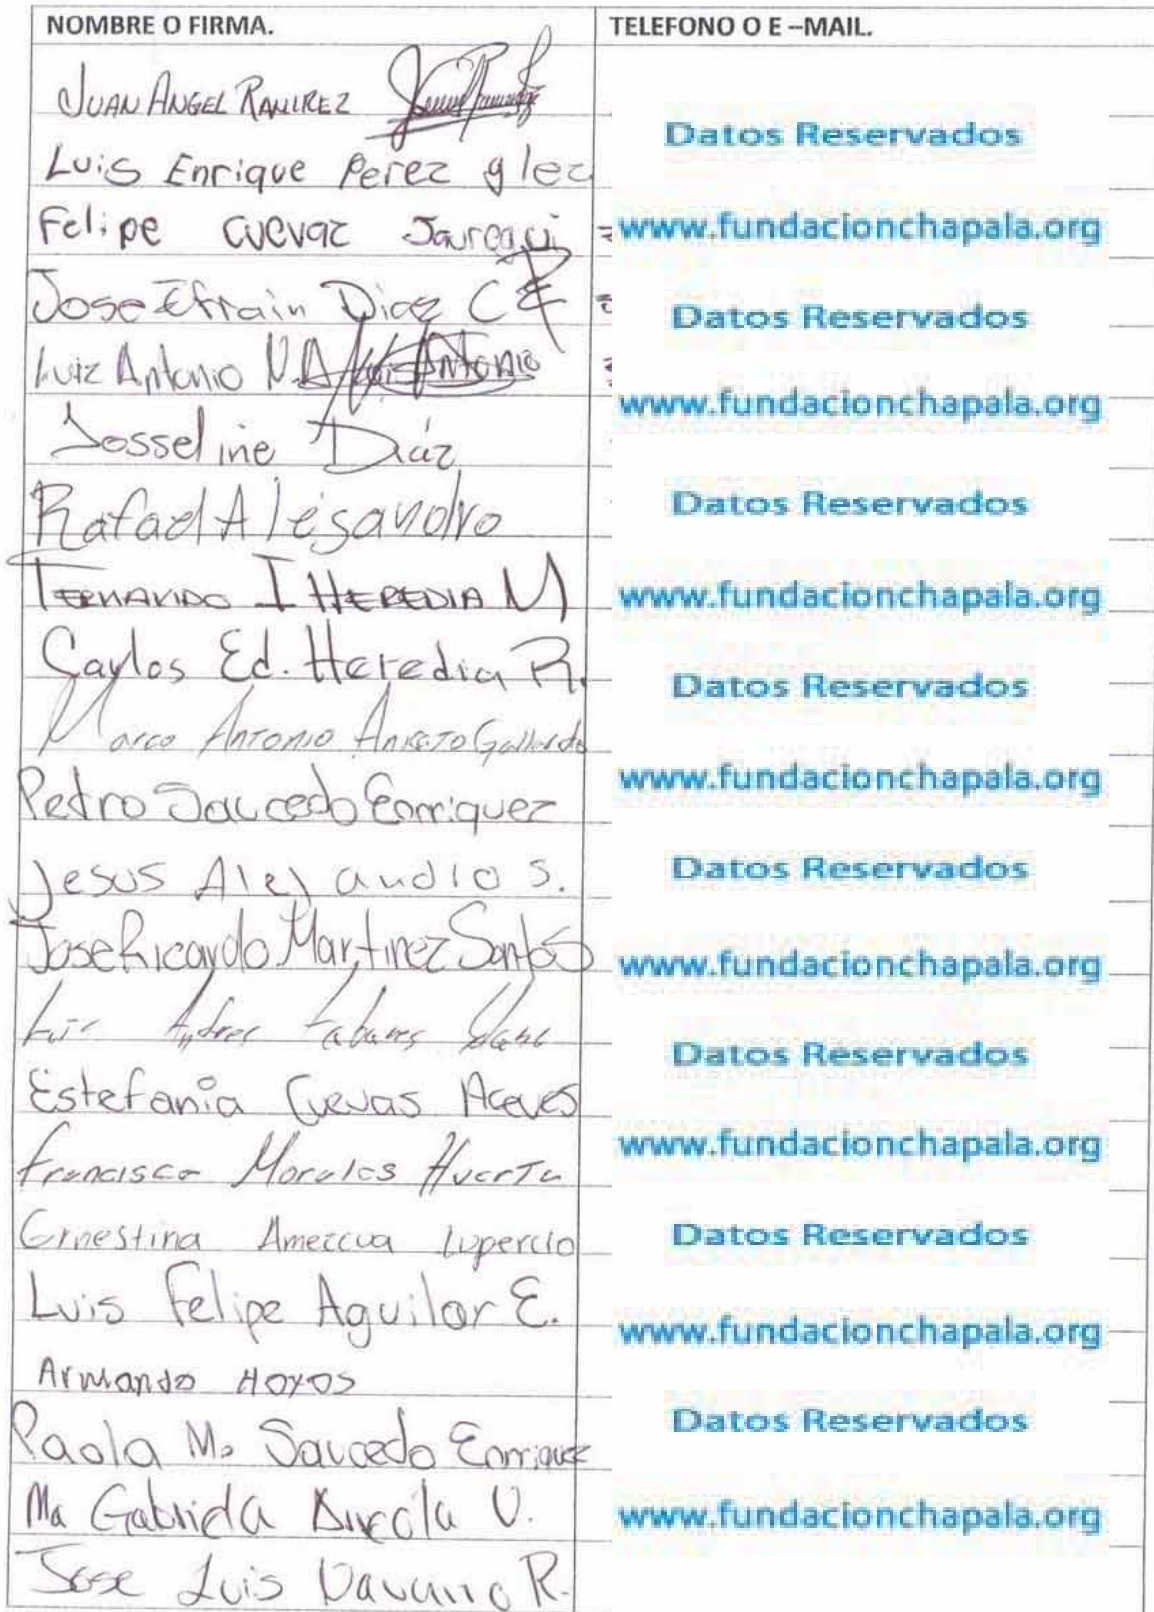 NOMBRE O FIRMA. TELEFONO O E –MAIL.
JUAN ANGEL RAMIREZ
Datos Reservados
Luis Enrique Perez glez
Felipe cuevaz Jauregui
www.fundacionchapala.org
Jose Efrain Diaz C
Datos Reservados
Luiz Antonio N.A Luis Antonio
www.fundacionchapala.org
Josseline Diáz
Rafael Alejandro
Datos Reservados
FERNANDO I HEREDIA M
www.fundacionchapala.org
Carlos Ed. Heredia R.
Datos Reservados
Marco Antonio Gallardo
Pedro Saucedo Enrriquez
www.fundacionchapala.org
Jesus Alejandro S.
Datos Reservados
Jose Ricardo Martinez Santos
www.fundacionchapala.org
Luis Andres
Datos Reservados
Estefania Cuevas Aceves
Francisco Morales Huerta
www.fundacionchapala.org
Ernestina Amezcua Lupercio
Datos Reservados
Luis Felipe Aguilar E.
www.fundacionchapala.org
Armando HOYOS
Paola Ma Saucedo Enrriquez
Datos Reservados
Ma Gabriela V.
www.fundacionchapala.org
Jose Luis Navarro R.